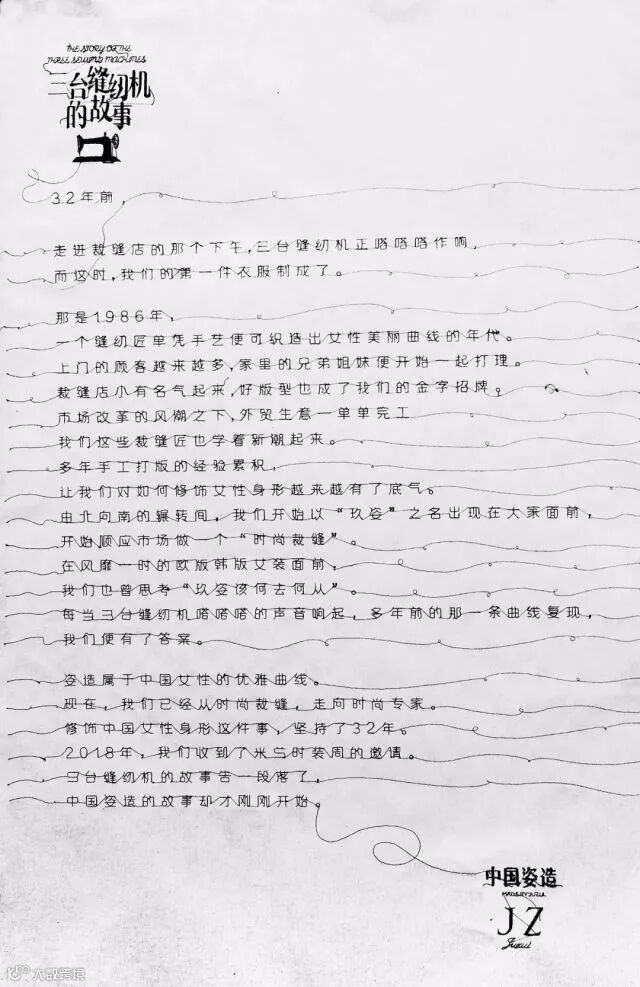 THE STORY OF THE
THREE SEWING MACHINES
三台缝纫机
的故事
32年前，
走进裁缝店的那个下午，三台缝纫机正嗒嗒嗒作响，
而这时，我们的第一件衣服制成了。
那是1986年，
一个缝纫匠单凭手艺便可织造出女性美丽曲线的年代。
上门的顾客越来越多，家里的兄弟姐妹便开始一起打理。
裁缝店小有名气起来，好版型也成了我们的金字招牌。
市场改革的风潮之下，外贸生意一单单完工
我们这些裁缝匠也学着新潮起来。
多年手工打版的经验累积，
让我们对如何修饰女性身形越来越有了底气。
由北向南的辗转间，我们开始以“玖姿”之名出现在大家面前，
开始顺应市场做一个“时尚裁缝”。
在风靡一时的欧版韩版女装面前，
我们也曾思考“玖姿该何去何从”。
每当三台缝纫机嗒嗒嗒的声音响起，多年前的那一条曲线复现，
我们便有了答案。
姿造属于中国女性的优雅曲线。
现在，我们已经从时尚裁缝，走向时尚专家。
修饰中国女性身形这件事，坚持了32年。
2018年，我们收到了米兰时装周的邀请。
三台缝纫机的故事告一段落了，
中国姿造的故事却才刚刚开始。
中国姿造
MADE BY JUZUI
JZ
Juzui
大数跨境